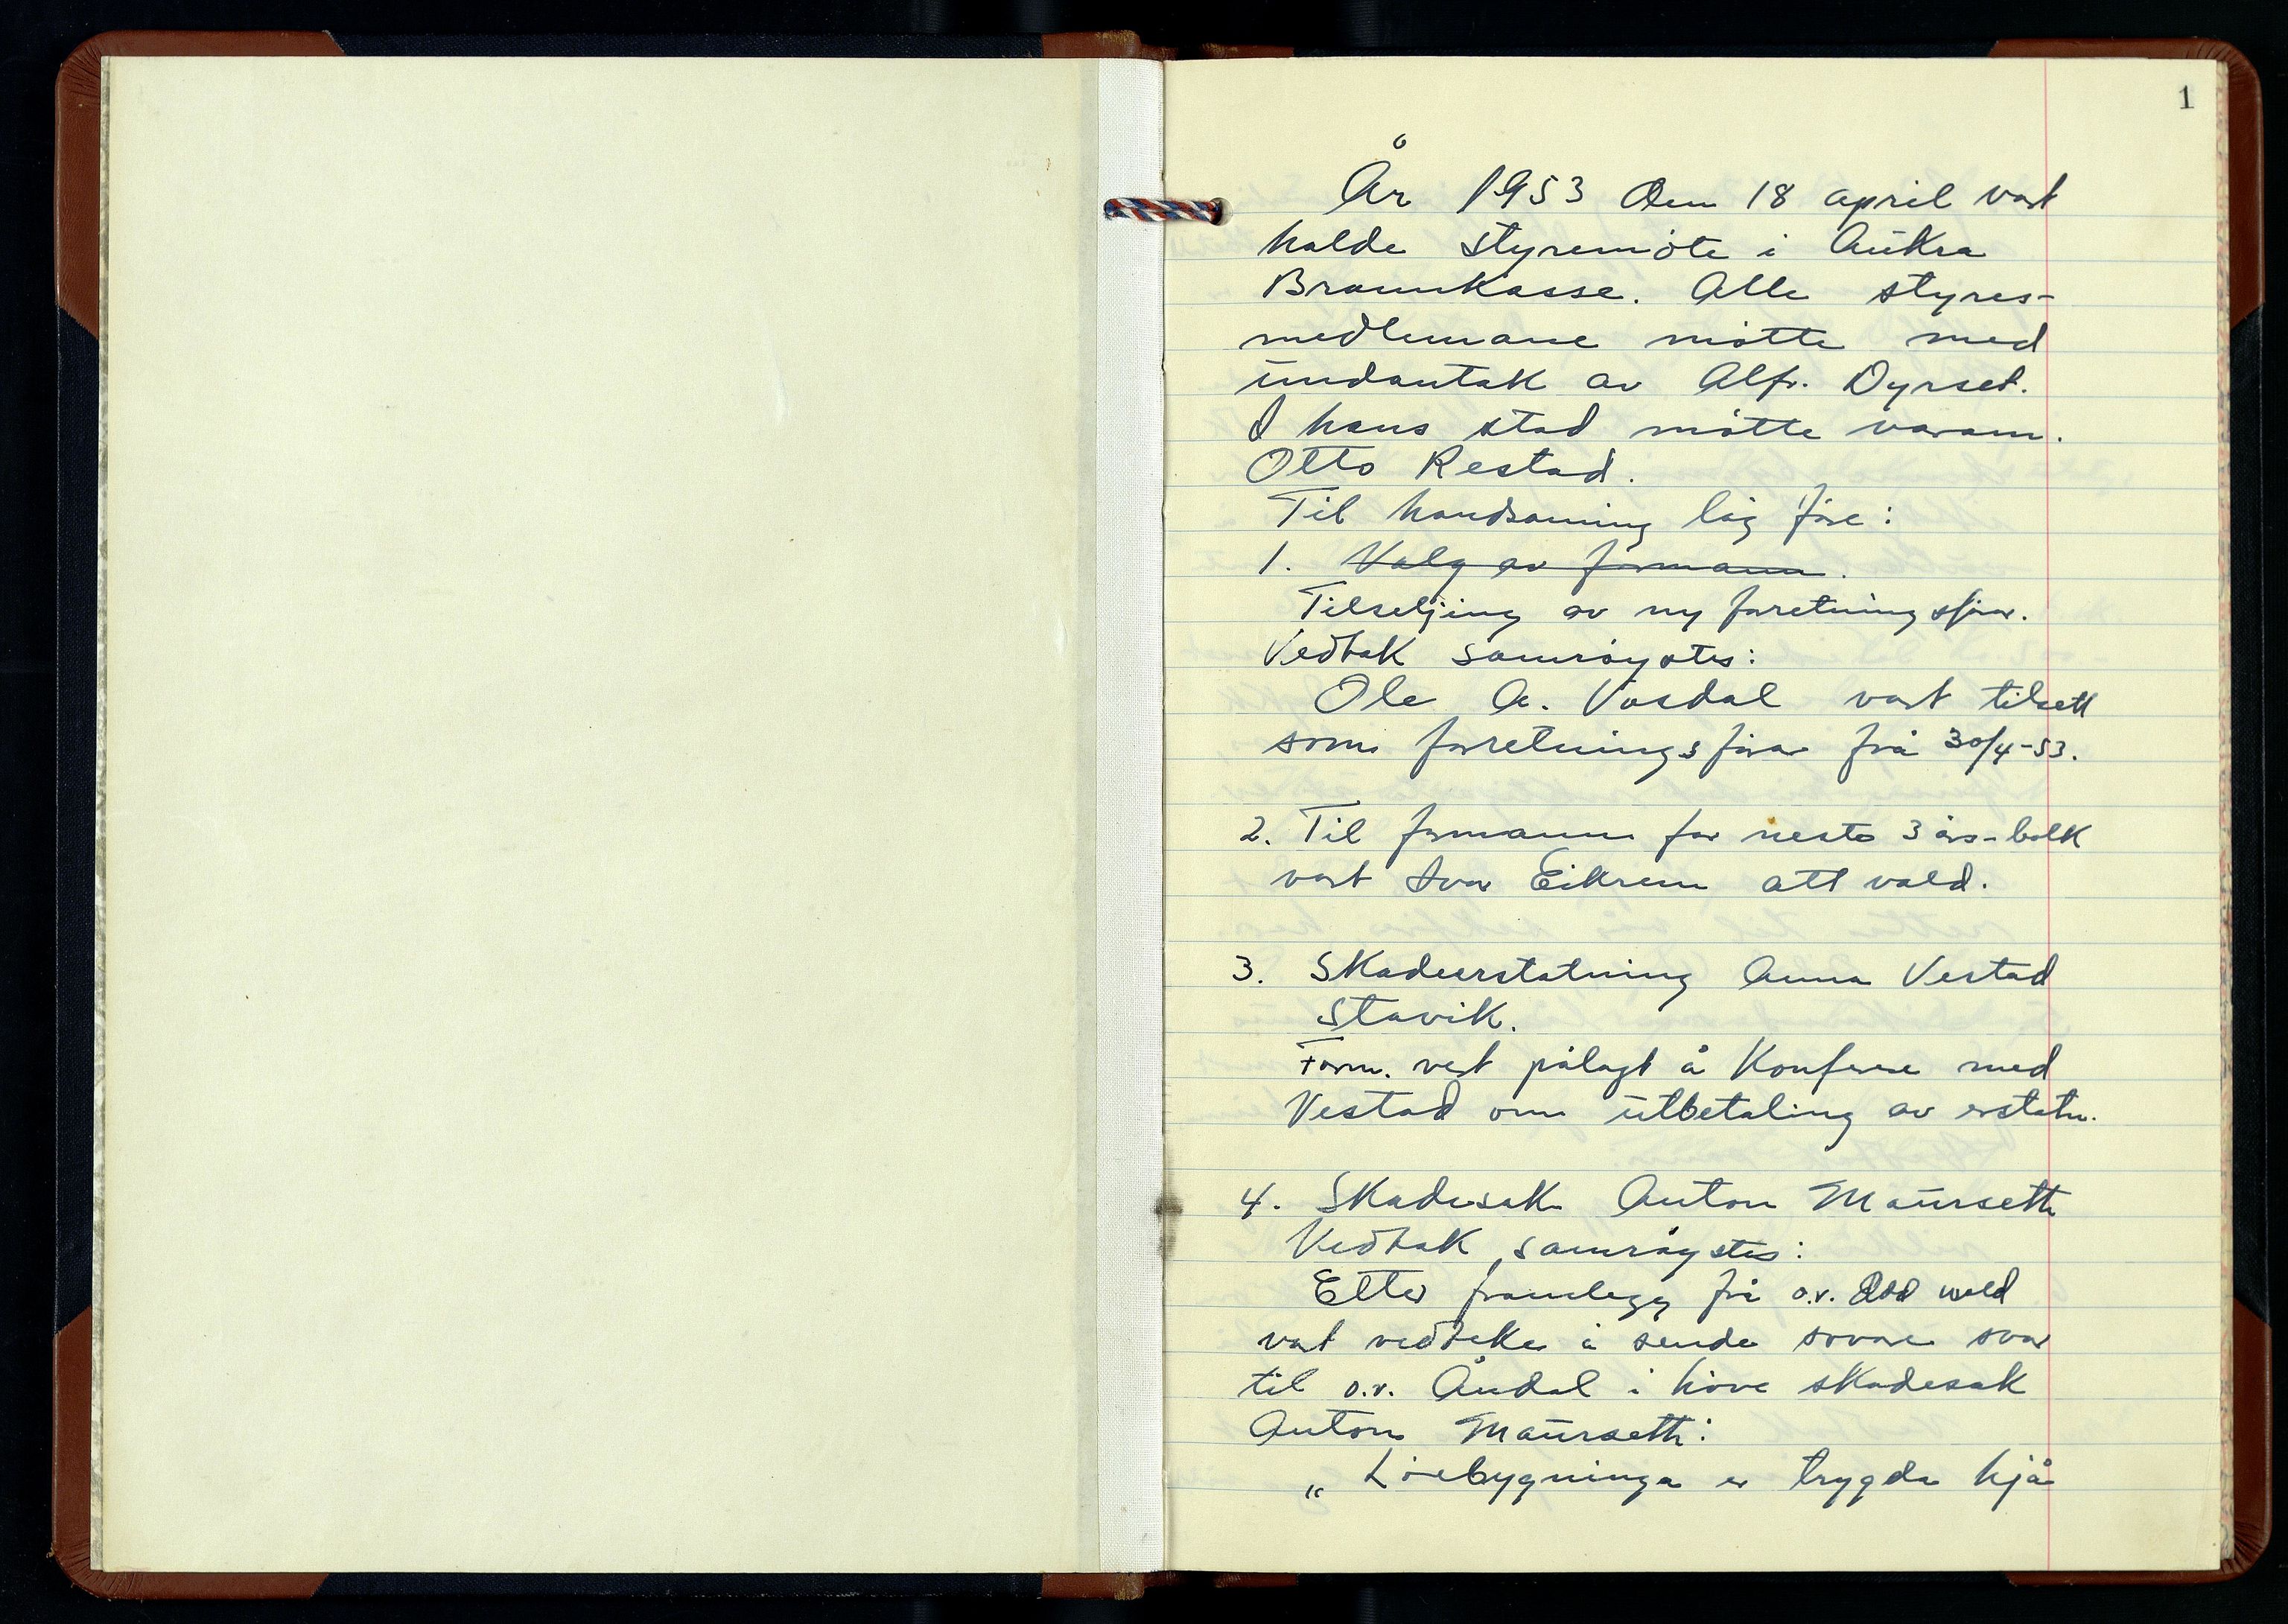 1
År 1953 den 18 april vart
halde styremøte i Aukra
Brannkasse. Alle styres-
medlemane møtte med
undantak av Alfr. Dyrset.
I hans stad møtte varam.
Otto Restad.
Til handsaming låg føre:
1. Valg av formann.
Tilseljing av ny foretningsfører.
Vedtak samrøystes:
Ole A. Vasdal vart tilsett
som forretningsførar frå 30/4-53.
2. Til formann for neste 3 års-bolk
vart Ivar Eikrem att vald.
3. Skadeerstatning Anna Vestad
Stavik.
Form. vert pålagt å konferere med
Vestad om utbetaling av erstatn.
4. Skadesak Anton Maursett
Vedtak samrøystes:
Etter framlegg frå o.v.
vart vedteke å sende svar
til o.v. Åndal i høve skadesak
Anton Maurseth:
„ Løebygninga er trygda hjå